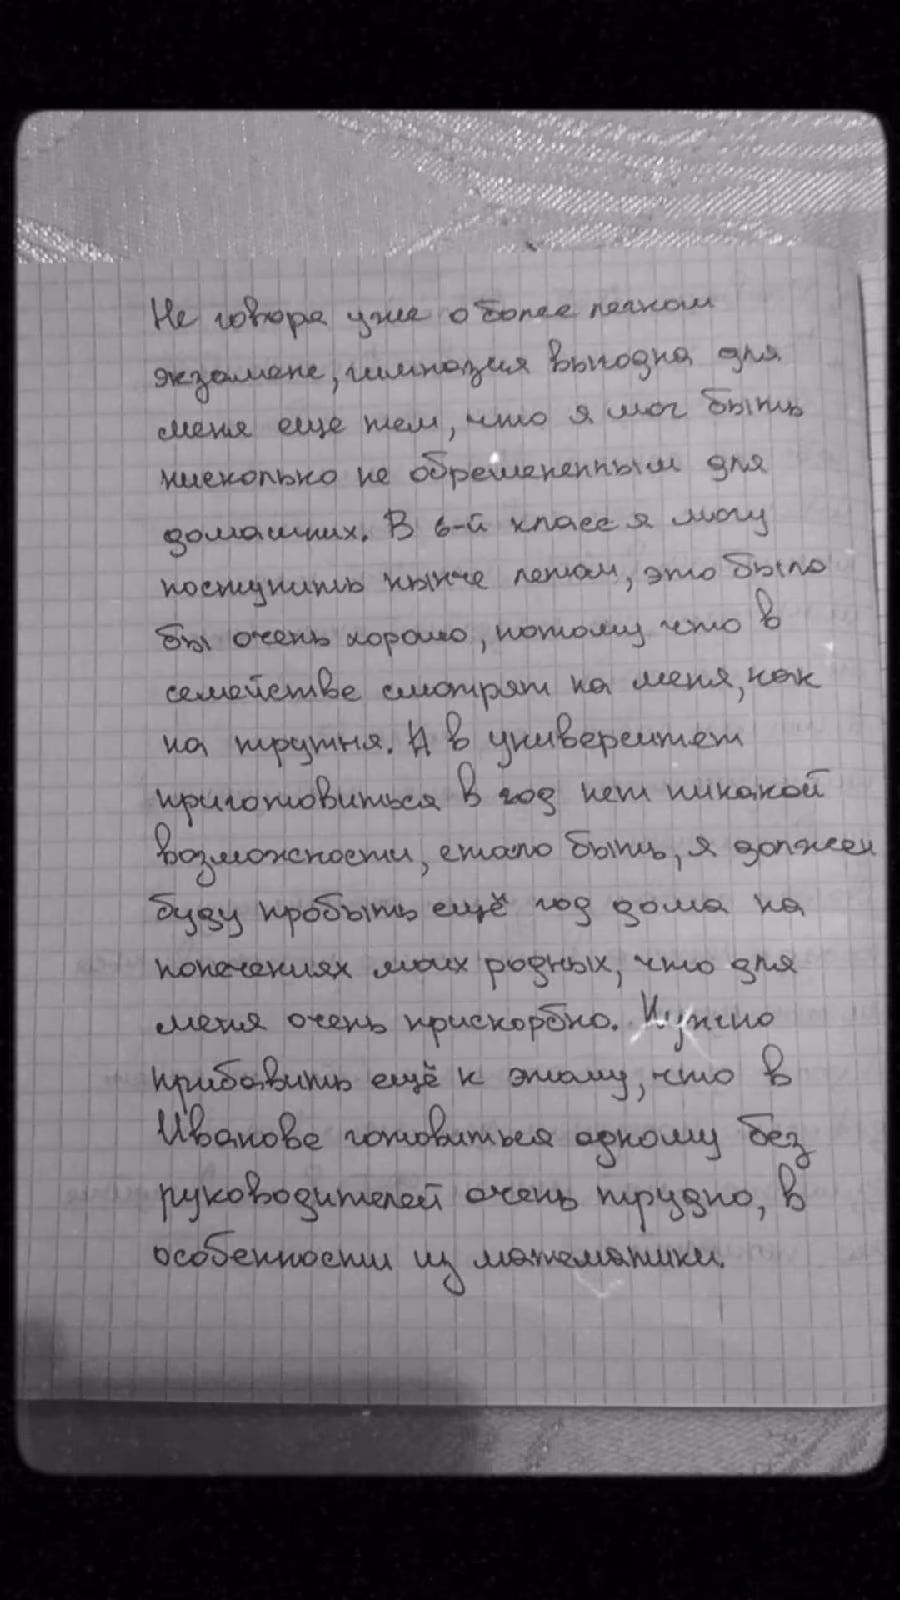 Не говоря уже о более легком
экзамене, гимназия выгодна для
меня еще тем, что я мог быть
нисколько не обремененным для
домашних. В 6-й класс я могу
поступить нынче летом, это было
бы очень хорошо, потому что в
семействе смотрят на меня, как
на трутня. А в университет
приготовиться в год нет никакой
возможности, стало быть, я должен
буду пробыть ещё год дома на
попечениях моих родных, что для
меня очень прискорбно. Нужно
прибавить ещё к этому, что в
Иванове готовиться одному без
руководителей очень трудно, в
особенности из математики.